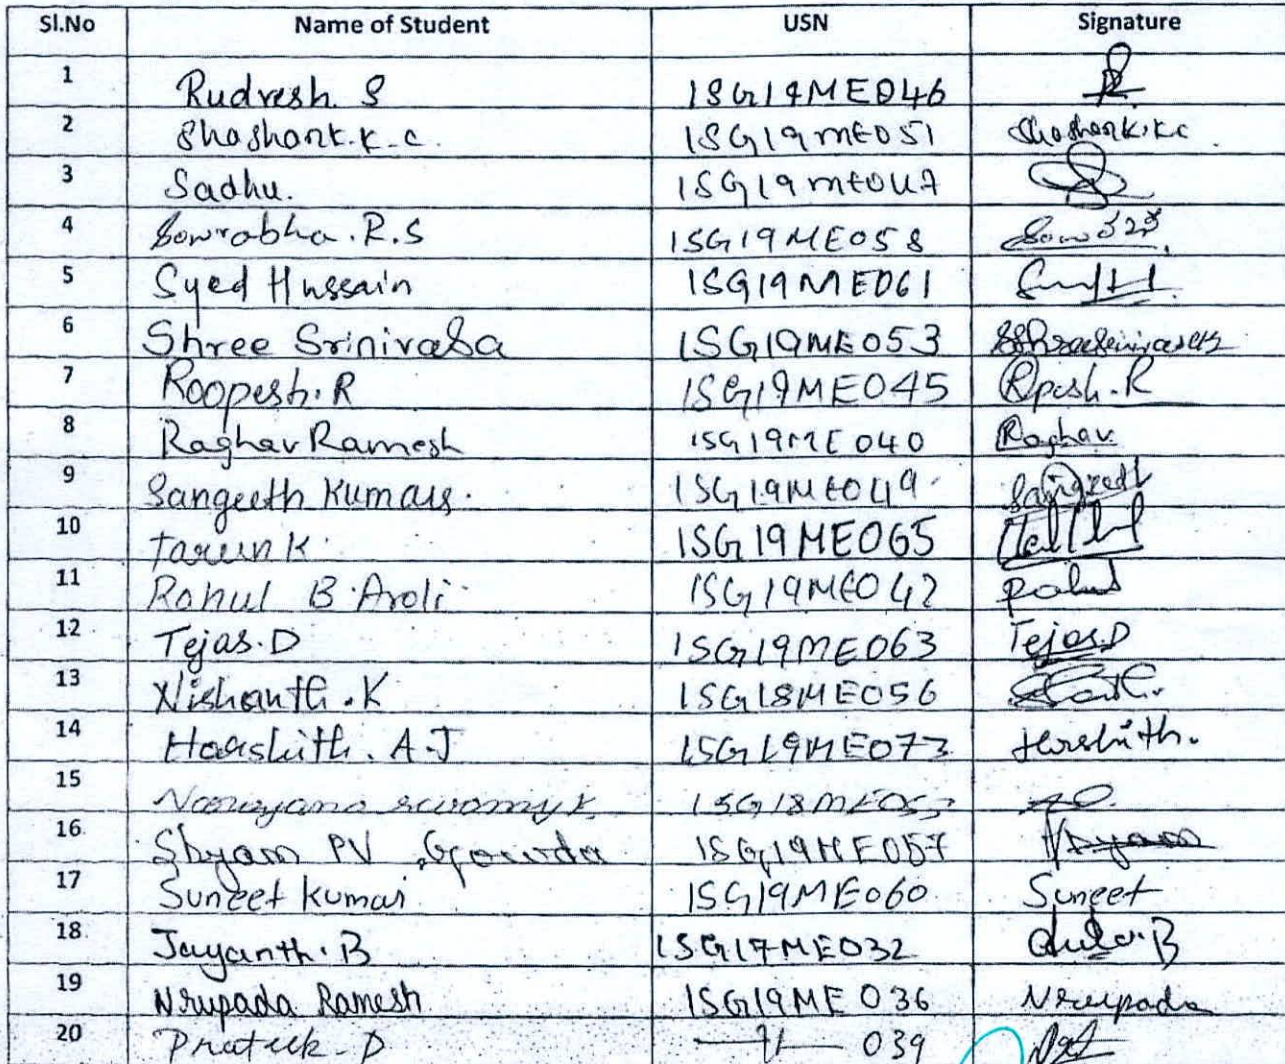 Sl.No Name of Student USN Signature
1 Rudresh S 1SG19ME046
2 Shashank.K.C. 1SG19ME051 Shashank.K.C
3 Sadhu. 1SG19ME047
4 Sowrabha.R.S 1SG19ME058
5 Syed Hussain 1SG19ME061
6 Shree Srinivasa 1SG19ME053
7 Roopesh.R 1SG19ME045 Rpesh.R
8 Raghav Ramesh 1SG19ME040 Raghav
9 Sangeeth Kumar. 1SG19ME049 Sangeeth
10 Tarun K 1SG19ME065
11 Rahul B Aroli 1SG19ME042 Rahul
12 Tejas.D 1SG19ME063 Tejas.D
13 Nishanth.K 1SG18ME056
14 Harshith.A.J 1SG19ME073 Harshith.
15 Narayana swamy K 1SG18ME053
16 Shyam PV Gowda 1SG19ME057 Shyam
17 Suneet Kumar 1SG19ME060 Suneet
18 Jayanth.B 1SG17ME032
19 Nrupada Ramesh 1SG19ME036 Nrupada
20 Prateek D —"— 039